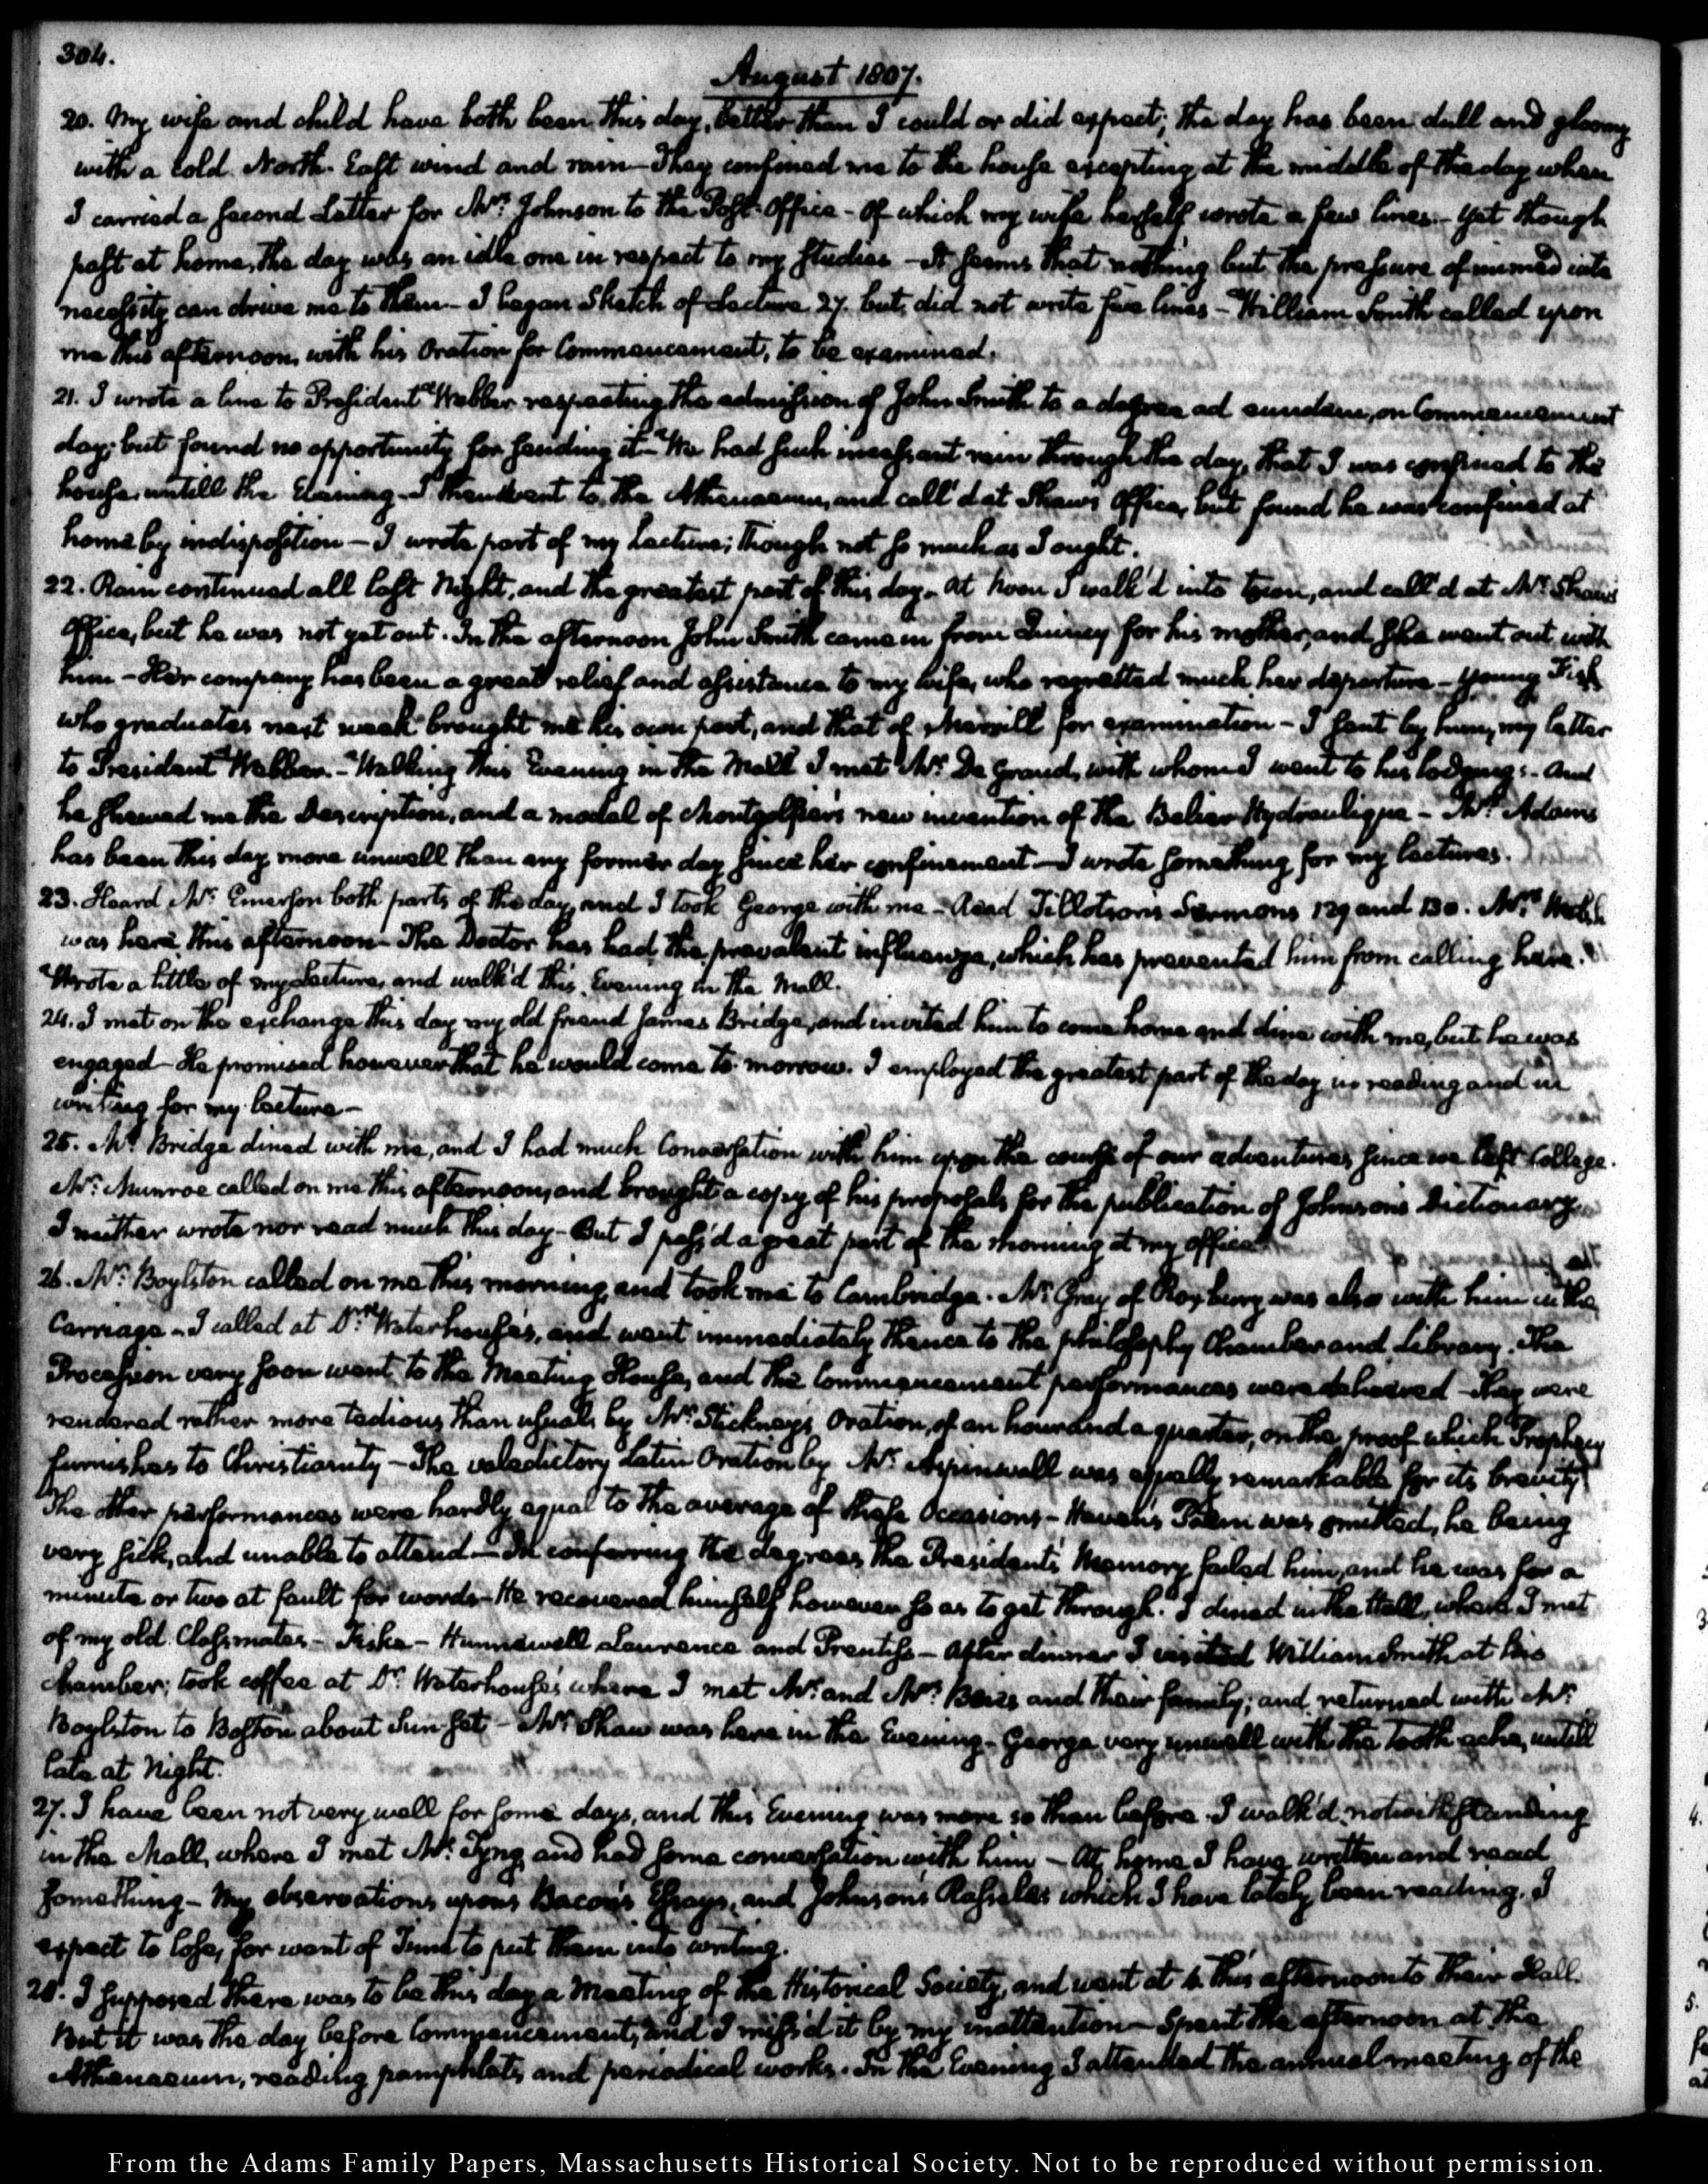 304.
August 1807.
20. My wife and child have both been this day, better than I could or did expect; the day has been dull and gloomy
with a cold North-East wind and rain—They confined me to the house excepting at the middle of the day when
I carried a second Letter for Mrs. Johnson to the Post-Office—Of which my wife herself wrote a few lines.—Yet though
past at home, the day was an idle one in respect to my studies—It seems that nothing but the pressure of immediate
necessity can drive me to them—I began Sketch of Lecture 27. but did not write five lines—William Smith called upon
me this afternoon, with his Oration for Commencement, to be examined.
21. I wrote a line to President Webber respecting the admission of John Smith to a degree ad eundem, on Commencement
day; but found no opportunity for sending it—We had such incessant rain through the day, that I was confined to the
house, untill the Evening—I then went to the Athenaeum, and call'd at Shaw's Office, but found he was confined at
home by indisposition—I wrote part of my Lecture; though not so much as I ought.
22. Rain continued all last Night, and the greatest part of this day—At Noon I walk'd into town, and call'd at Mr. Shaw's
Office, but he was not yet out. In the afternoon John Smith came in from Quincy for his mother, and she went out with
him—Her company has been a great relief and assistance to my wife, who regretted much her departure—Young Fisk
who graduates next week brought me his own part, and that of Merrill for examination—I sent by him, my letter
to President Webber.—Walking this Evening in the Mall I met Mr. De Grand, with whom I went to his lodgings—And
he shewed me the Description, and a model of Montgolfier's new invention of the Belier Hydraulique—Mrs. Adams
has been this day more unwell than any former day since her confinement—I wrote something for my lectures.
23. Heard Mr. Emerson both parts of the day, and I took George with me—Read Tillotson's Sermons 129 and 130. Mrs. Welsh
was here this afternoon—The Doctor has had the prevalent influenza, which has prevented him from calling here.
Wrote a little of my Lecture, and walk'd this Evening in the Mall.
24. I met on the exchange this day my old friend James Bridge, and invited him to come home and dine with me, but he was
engaged—He promised however that he would come to-morrow. I employed the greatest part of the day in reading and in
writing for my lecture—
25. Mr. Bridge dined with me, and I had much Conversation with him upon the course of our adventures since we left College.
Mr. Munroe called on me this afternoon, and brought a copy of his proposals for the publication of Johnson's Dictionary.
I neither wrote nor read much this day—But I pass'd a great part of the morning at my office.
26. Mr. Boylston called on me this morning, and took me to Cambridge. Mr. Gray of Roxbury was also with him in the
Carriage—I called at Dr. Waterhouse's, and went immediately thence to the philosophy Chamber and Library. The
Procession very soon went to the Meeting House, and the Commencement performances were delivered—They were
rendered rather more tedious than usual, by Mr. Stickney's Oration, of an hour and a quarter, on the proof which Prophecy
furnishes to Christianity—The valedictory Latin Oration by Mr. Aspinwall was equally remarkable for its brevity
The other performances were hardly equal to the average of these Occasions—Haven's Poem was omitted, he being
very sick, and unable to attend—In conferring the degrees, the President's Memory failed him, and he was for a
minute or two at fault for words—He recovered himself however so as to get through. I dined in the Hall, where I met
of my old Classmates—Fiske—Hunnewell Lawrence and Prentiss—After dinner I visited William Smith at his
chamber; took coffee at Dr. Waterhouse's where I met Mr. and Mrs. and their family; and returned with Mr.
Boylston to Boston about Sun-set—Mr. Shaw was here in the Evening—George very unwell with the tooth ache, untill
late at Night.
27. I have been not very well for some days, and this Evening was more so than before. I walk'd notwithstanding
in the Mall, where I met Mr. Tyng, and had some conversation with him—At home I have written and read
something—My observations upon Bacon's Essays, and Johnson's Rasselas which I have lately been reading, I
expect to lose, for want of Time to put them into writing.
28. I supposed there was to be this day a Meeting of the Historical Society, and went at this afternoon to their Hall.
But it was the day before Commencement, and I miss'd it by my inattention—Spent the afternoon at the
Athenaeum, reading pamphlets, and periodical works. In the Evening I attended the annual meeting of the
From the Adams Family Papers, Massachusetts Historical Society. Not to be reproduced without permission.